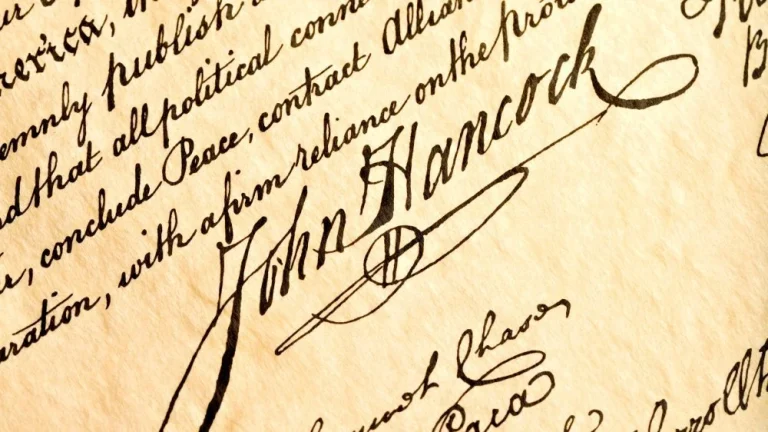 publish
emnly publish
that all political conne
conclude Peace, contract Allian
ration, with a firm reliance on the pro
John Hancock
Chase
Paca